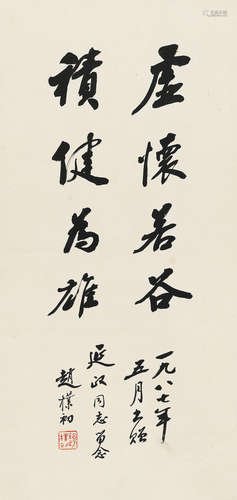 虛懷若谷
積健為雄
一九八七年
五月書贈
延政同志留念
趙樸初